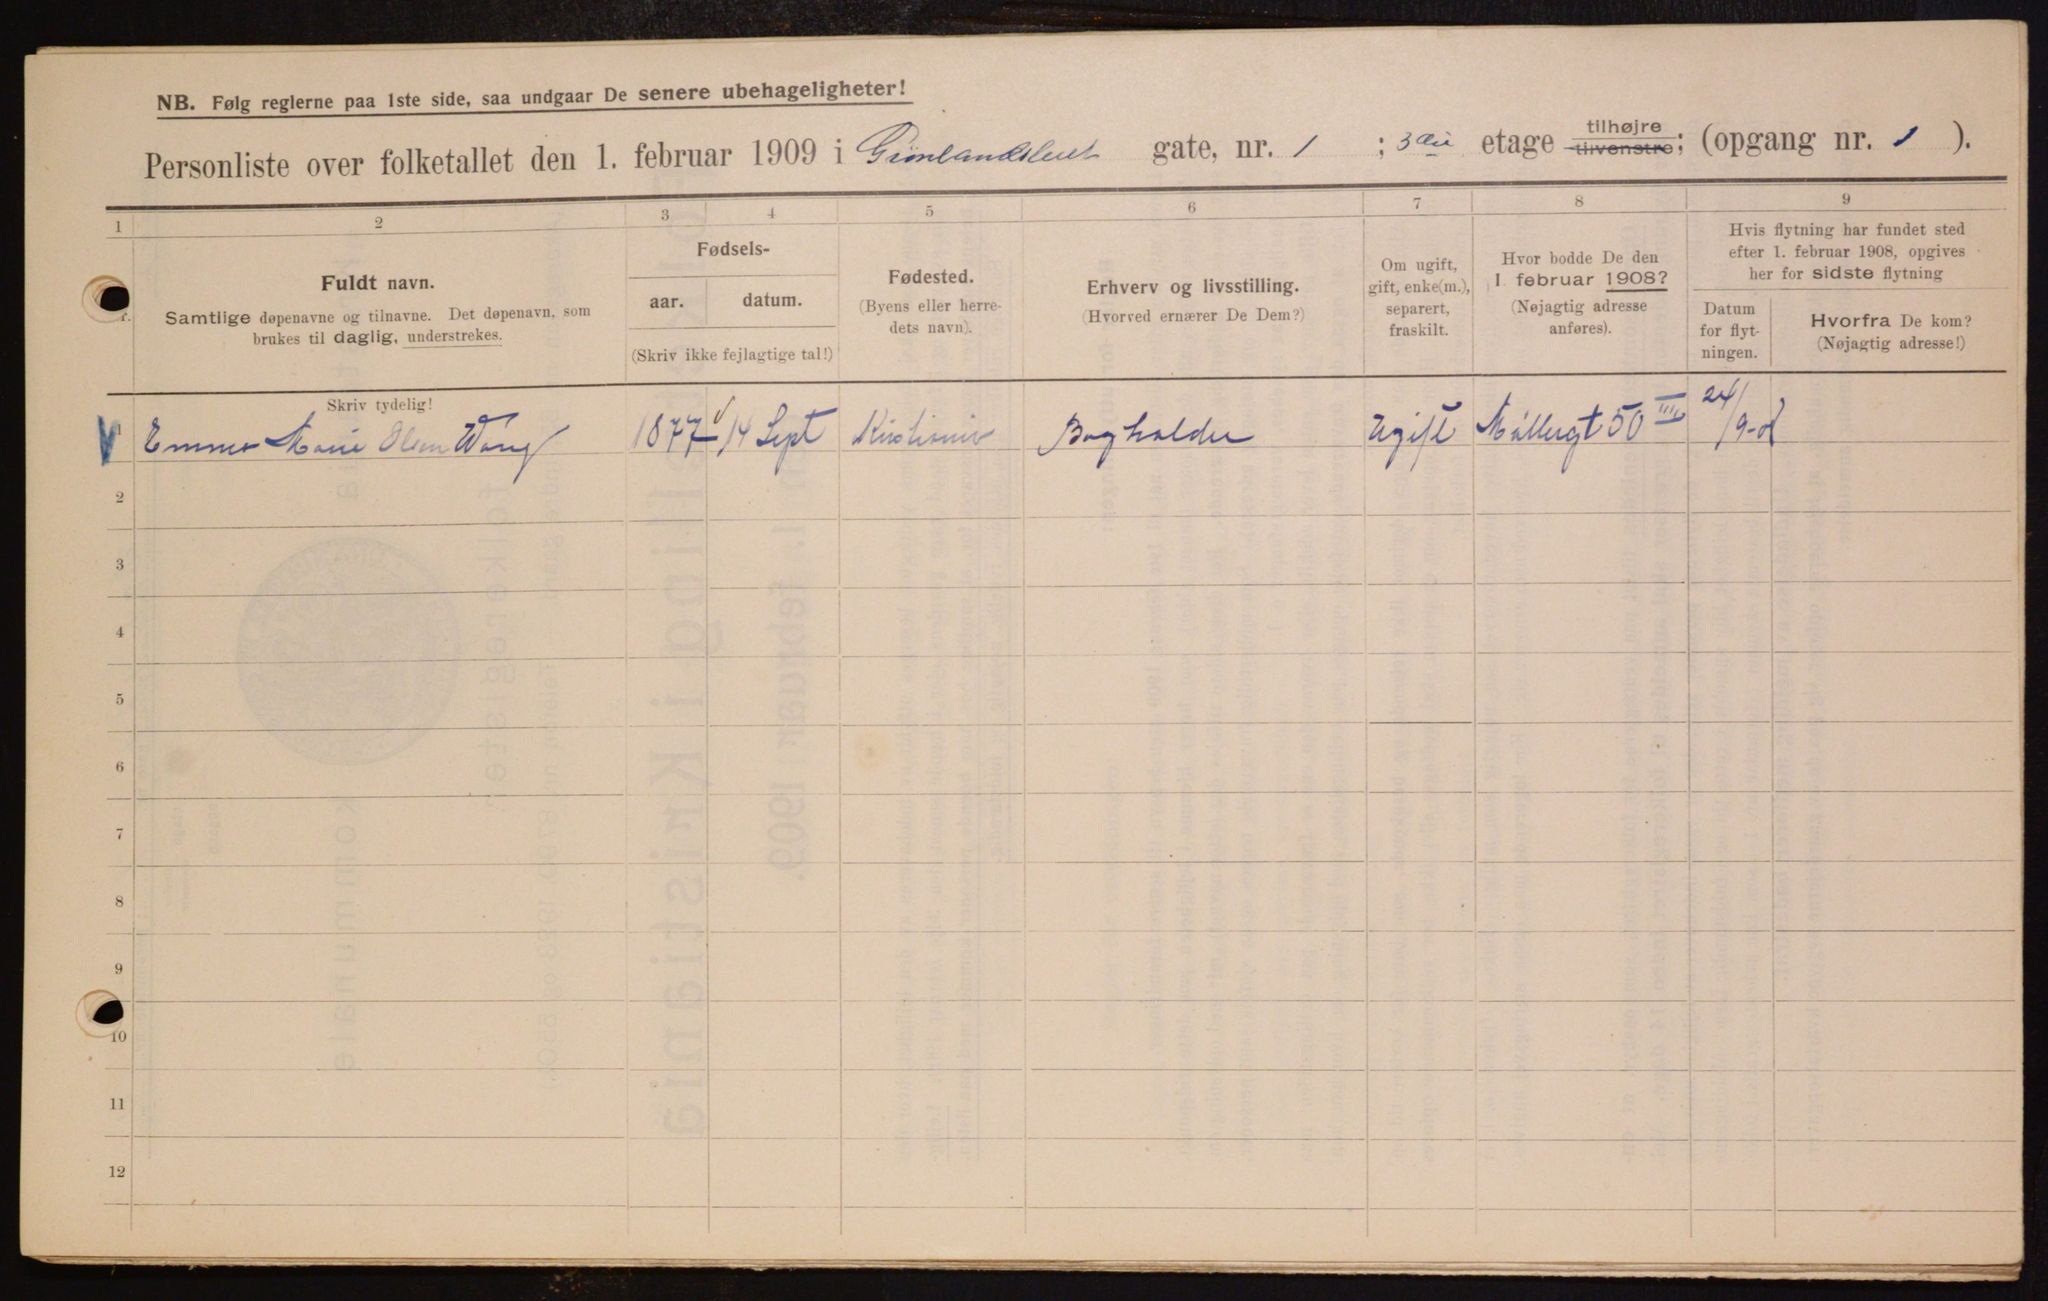 NB. Følg reglerne paa 1ste side, saa undgaar De senere ubehageligheter!
Personliste over folketallet den 1. februar 1909 i Grønlandsleret gate, nr. 1 ; 3die etage tilhøjre tilvenstre; (opgang nr. 1 ).
1 2 3 4 5 6 7 8 9
Fuldt navn.
Samtlige døpenavne og tilnavne. Det døpenavn, som
brukes til daglig, understrekes.
Skriv tydelig!
Fødsels-
aar. datum.
(Skriv ikke fejlagtige tal!)
Fødested.
(Byens eller herre-
dets navn).
Erhverv og livsstilling.
(Hvorved ernærer De Dem?)
Om ugift,
gift, enke(m.),
separert,
fraskilt.
Hvor bodde De den
1. februar 1908?
(Nøjagtig adresse
anføres).
Hvis flytning har fundet sted
efter 1. februar 1908, opgives
her for sidste flytning
Datum
for flyt-
ningen.
Hvorfra De kom?
(Nøjagtig adresse!)
Emma Marie Olsen Wang 1877 14 Sept Kristiania Bogholder Ugift Møllergt 50 III 24/9-08
2
3
4
5
6
7
8
9
10
11
12